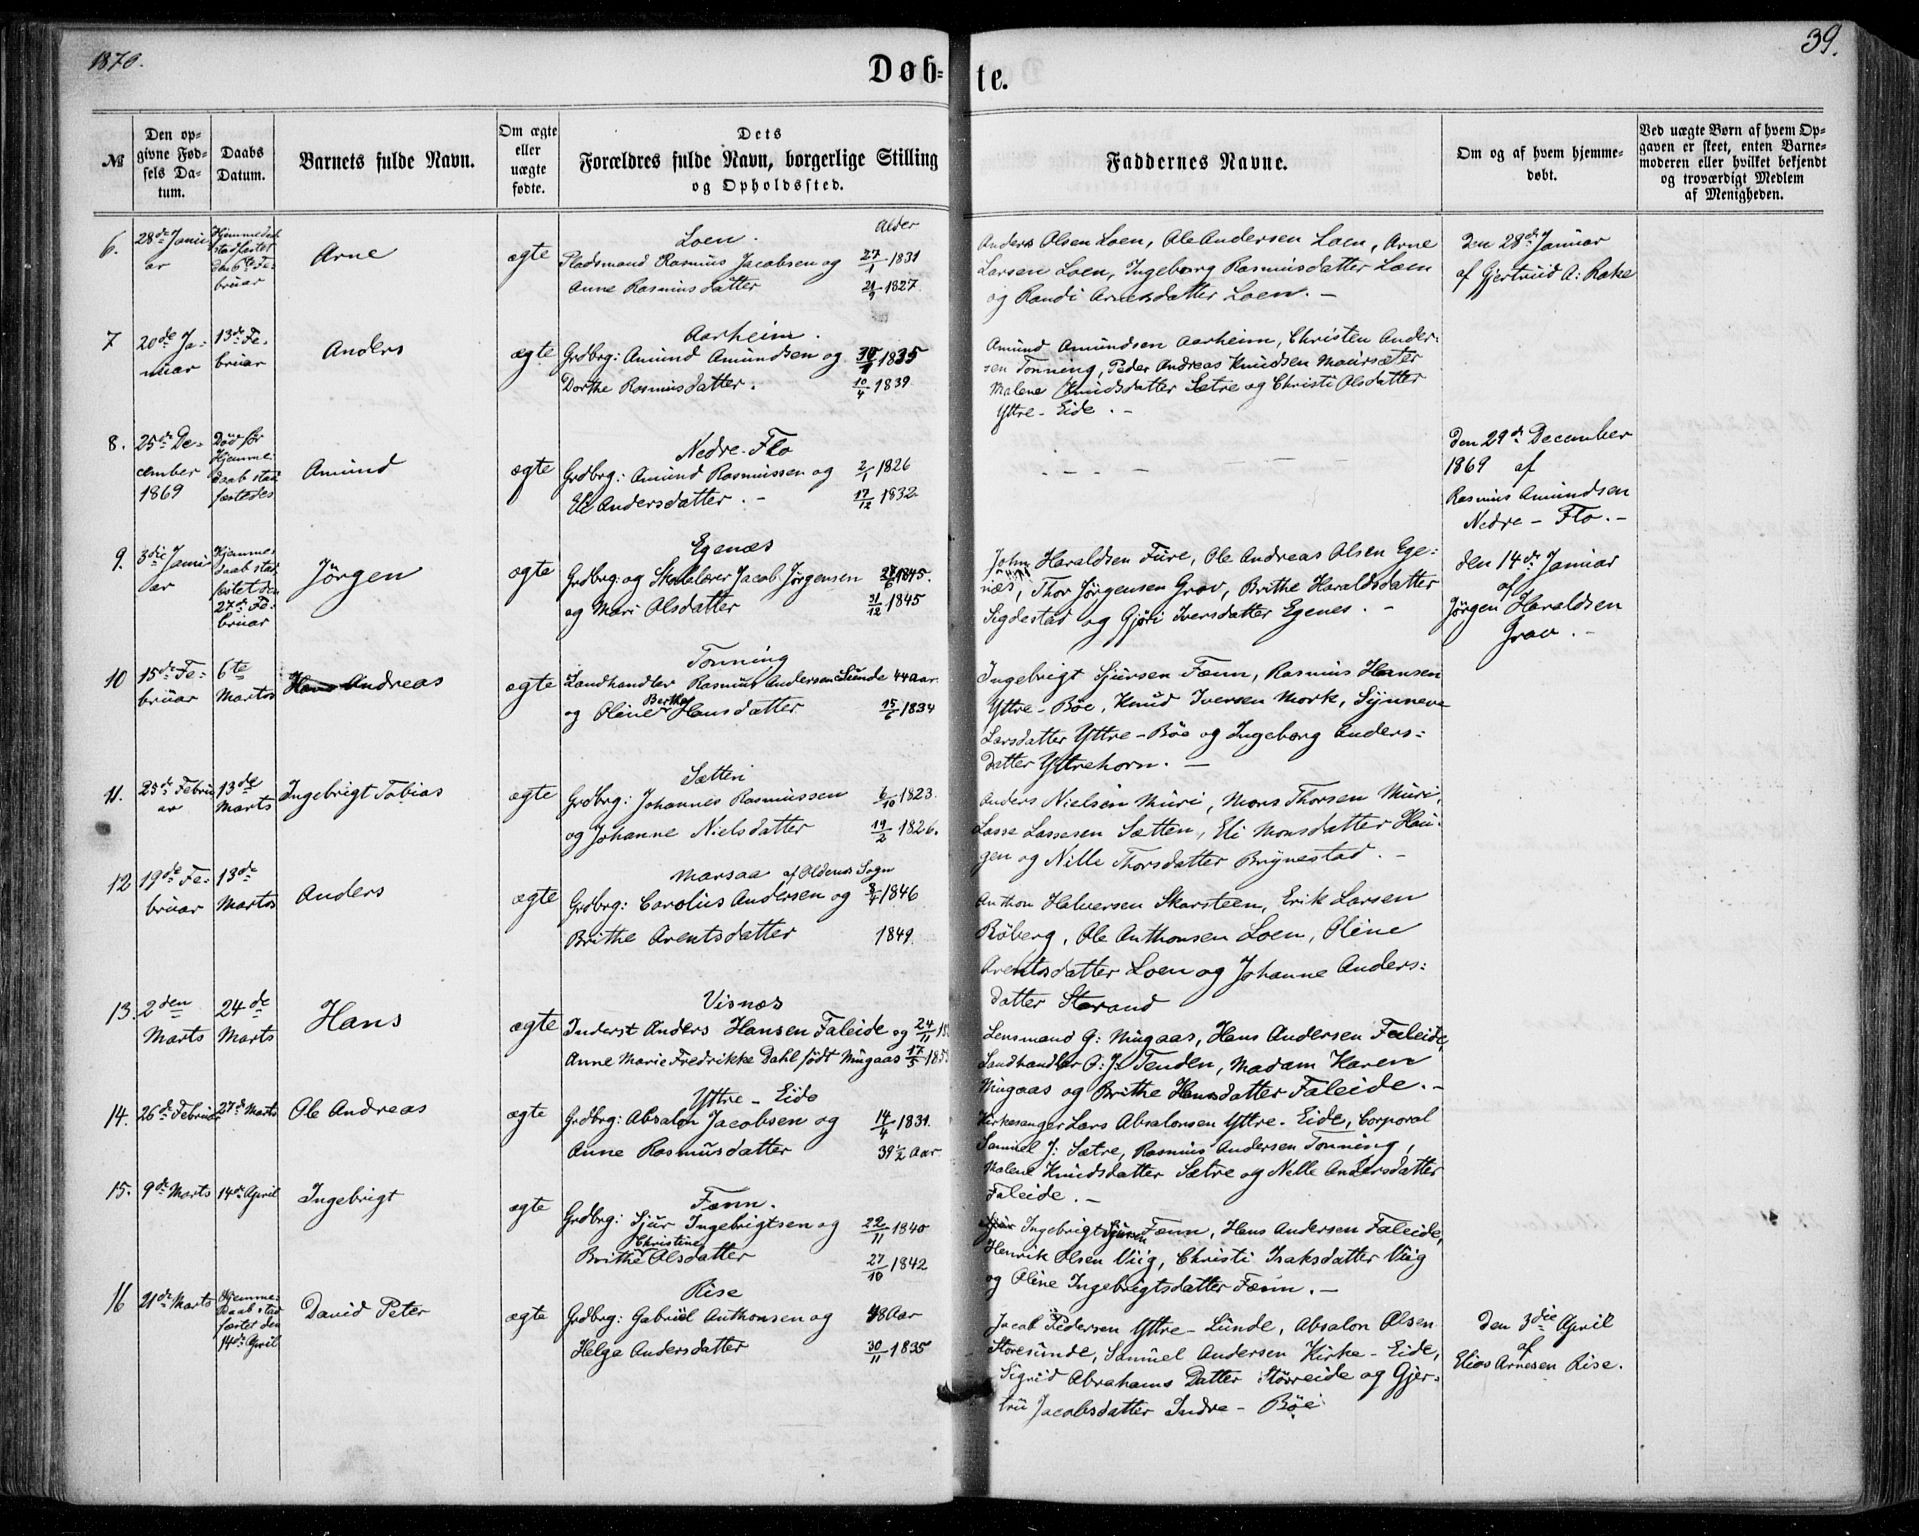 1870.
39.
Døb-
te.
№
Den op-
givne Fød-
sels Da-
tum.
Daabs
Datum.
Barnets fulde Navn.
Om ægte
eller
uægte
fødte.
Dets
Forældres fulde Navn, borgerlige Stilling
og Opholdssted.
Faddernes Navne.
Om og af hvem hjemme-
døbt.
Ved uægte Børn af hvem Op-
gaven er skeet, enten Barne-
moderen eller hvilket bekjendt
og troværdigt Medlem
af Menigheden.
6.
28de Janu-
ar
Hjemmedaab
stadfæstet
den 6te Fe-
bruar
Arne
ægte
Loen.
Alder
Pladsmand Rasmus Jacobsen og 27/1 1831
Anne Rasmusdatter 21/9 1827.
Anders Olsen Loen, Ole Andersen Loen, Arne
Larsen Loen, Ingeborg Rasmusdatter Loen
og Randi Arnesdatter Loen. -
Den 28de Januar
af Gjertrud A: Rake
7
20de Ja-
nuar
13de Fe-
bruar
Anders
ægte
Aarheim.
Grdbrg: Amund Amundsen og 1835
Dorthe Rasmusdatter. 10/4 1839.
Amund Amundsen Aarheim, Christen Ander-
sen Tonning, Peder Andreas Knudsen Maursæter
Malene Knudsdatter Sætre og Christi Olsdatter
Yttre-Eide. -
8.
25de De-
cember
1869
Død før
Hjemme-
daab stad-
fæstedes
Amund
ægte
Nedre-Flo
Grdbrg: Amund Rasmussen og 2/1 1826
Eli Andersdatter. - 17/12 1832.
- - - -
Den 29de December
1869 af
Rasmus Amundsen
Nedre-Flo. -
9.
3die Janu-
ar
Hjemme-
daab stad-
fæstet den
27de Fe-
bruar
Jørgen
ægte
Egenæs
Grdbrg: og Skolelærer Jacob Jørgensen 1845.
og Mari Olsdatter 31/12 1845
John Haraldsen Fure, Ole Andreas Olsen Ege-
næs, Thor Jørgensen Grov, Brithe Haraldsdatter
Sigdestad og Gjøri Iversdatter Egenes. -
Den 14de Januar
af
Jørgen Haraldsen
Grov. -
10
15de Fe-
bruar
6te
Marts
Hans Andreas
ægte
Tonning
Landhandler Rasmus Andersen Lunde 44 Aar.
og Oline Berthe Hansdatter 15/6 1834
Ingebrigt Sjursen Fænn, Rasmus Hansen
Yttre-Bøe, Knud Iversen Mork, Synneve
Larsdatter Yttre-Bøe og Ingeborg Anders-
datter Yttrehorn. -
11.
25de Febru-
ar
13de
Marts
Ingebrigt Tobias
ægte
Sætten
Grdbrg: Johannes Rasmussen 6/10 1823.
og Johanne Nielsdatter 19/2 1826.
Anders Nielsen Muri, Mons Thorsen Muri,
Lasse Lassesen Sætten, Eli Monsdatter Hau-
gen og Nille Thorsdatter Brynestad. -
12
19de Fe-
bruar
13de
Marts
Anders
ægte
Marsaa af Oldens Sogn
Grdbrg: Carolus Andersen og 1846
Brithe Arentsdatter 1849.
Anthon Halvorsen Skarsteen, Erik Larsen
Røberg, Ole Anthonsen Loen, Oline
Arentsdatter Loen og Johanne Anders-
datter Strand
13.
2den
Marts
24de
Marts
Hans
ægte
Visnæs
Inderst Anders Hansen Faleide og 24/11
Anne Marie Fredrikke Dahl født Mugaas 17/5
Lensmand G: Mugaas, Hans Andersen Faleide,
Landhandler A: J: Tenden, Madam Karen
Mugaas og Brithe Hansdatter Faleide. -
14.
26de Februar
27de Marts
Ole Andreas
ægte
Yttre-Eide
Grdbrg: Absalon Jacobsen og 14/4 1831.
Anne Rasmusdatter 39 1/2 Aar
Kirkesanger Lars Absalonsen Yttre-Eide, Corporal
Samuel J: Sætre, Rasmus Andersen Tonning,
Malene Knudsdatter Sætre og Nelle Andersdatter
Faleide. -
15.
9de Marts
14de April
Ingebrigt
ægte
Fænn.
Grdbrg: Sjur Ingebrigtsen og 22/11 1840
Brithe Christine Olsdatter 27/10 1842
Ingebrigt Sjursen Fænn, Hans Andersen Faleide,
Henrik Olsen Viig, Christi Isaksdatter Viig
og Oline Ingebrigtsdatter Fænn. -
16
21de Marts
Hjemme-
daab stad-
fæstet den
14de April
David Peter
ægte
Rise
Grdbrg: Gabriel Anthonsen og 48 Aar
Helge Andersdatter 30/11 1835
Jacob Pedersen Yttre-Lunde, Absalon Olsen
Storesunde, Samuel Andersen Kirke-Eide,
Sigrid Abrahams Datter Storeide og Gjer-
tru Jacobsdatter Indre-Bøe
Den 3die April
af
Elias Arnesen Rise.